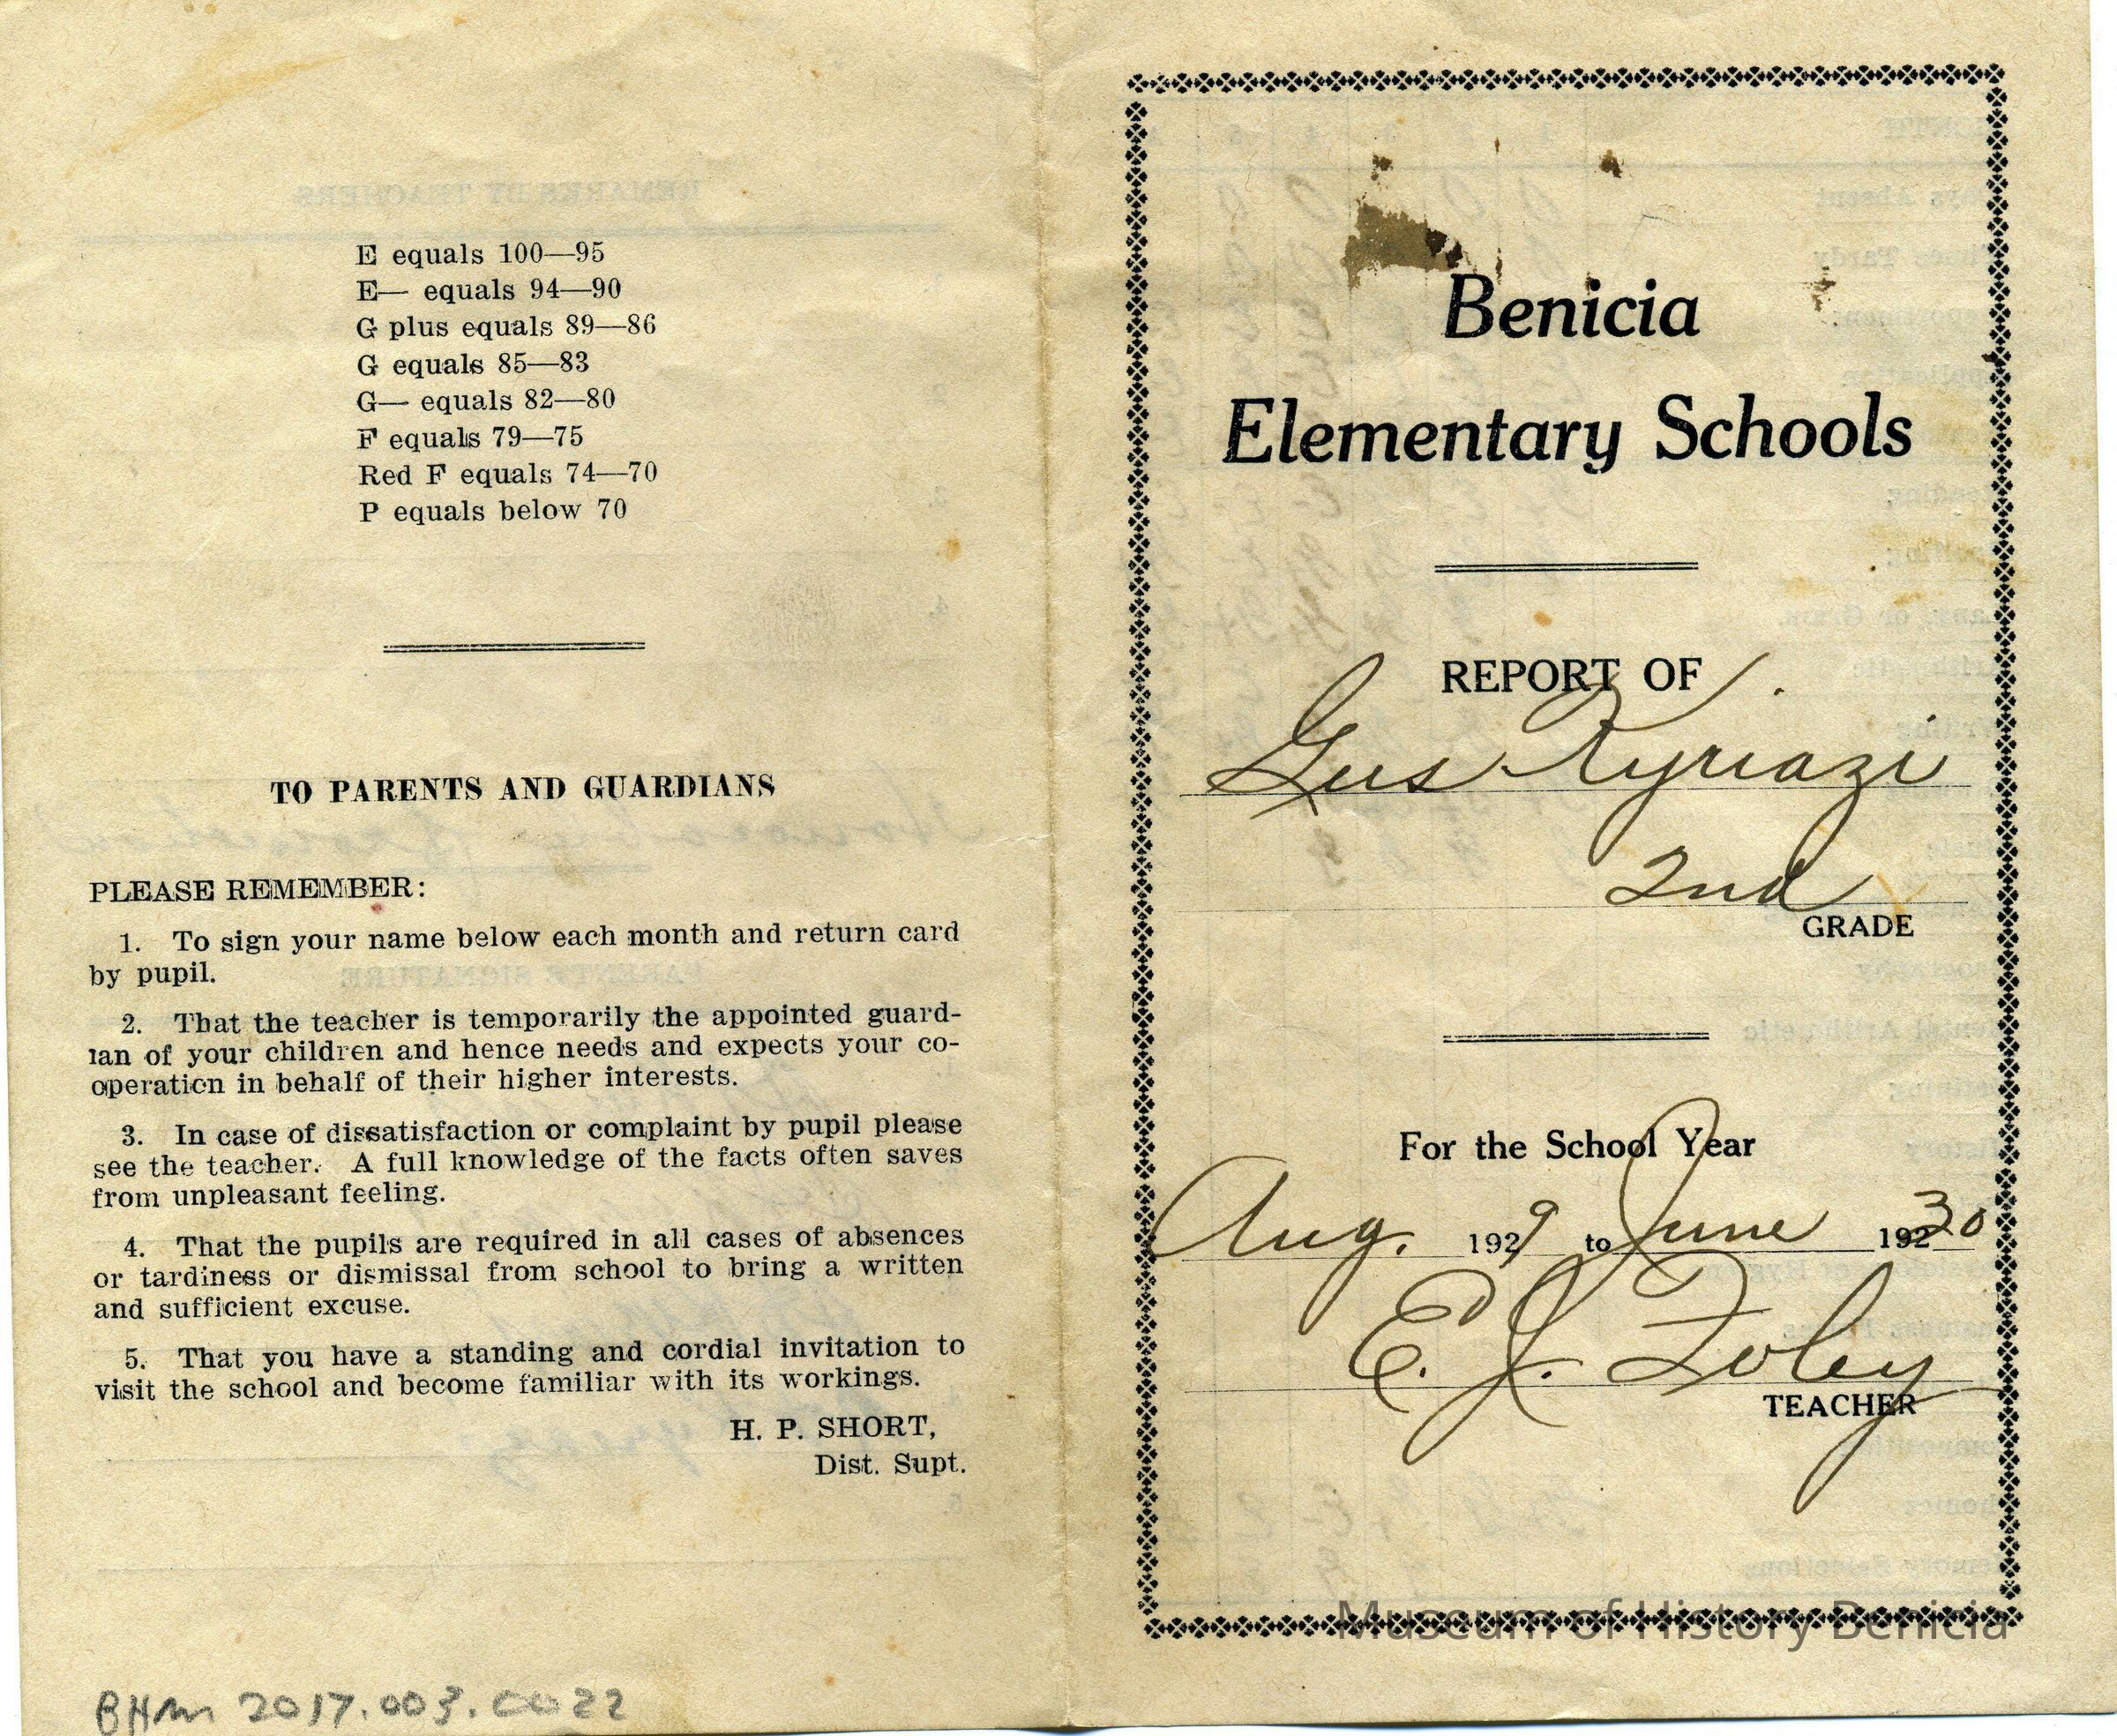 E equals 100—95
E— equals 94—90
G plus equals 89—86
G equals 85—83
G— equals 82—80
F equals 79—75
Red F equals 74—70
P equals below 70
TO PARENTS AND GUARDIANS
PLEASE REMEMBER:
1. To sign your name below each month and return card
by pupil.
2. That the teacher is temporarily the appointed guard-
ian of your children and hence needs and expects your co-
operation in behalf of their higher interests.
3. In case of dissatisfaction or complaint by pupil please
see the teacher. A full knowledge of the facts often saves
from unpleasant feeling.
4. That the pupils are required in all cases of absences
or tardiness or dismissal from school to bring a written
and sufficient excuse.
5. That you have a standing and cordial invitation to
visit the school and become familiar with its workings.
H. P. SHORT,
Dist. Supt.
BHM 2017.003.0022
Benicia
Elementary Schools
REPORT OF
Gus Kyriazi
2nd
GRADE
For the School Year
Aug. 1929 to June 19230
E. J. Foley
TEACHER
Museum of History Benicia